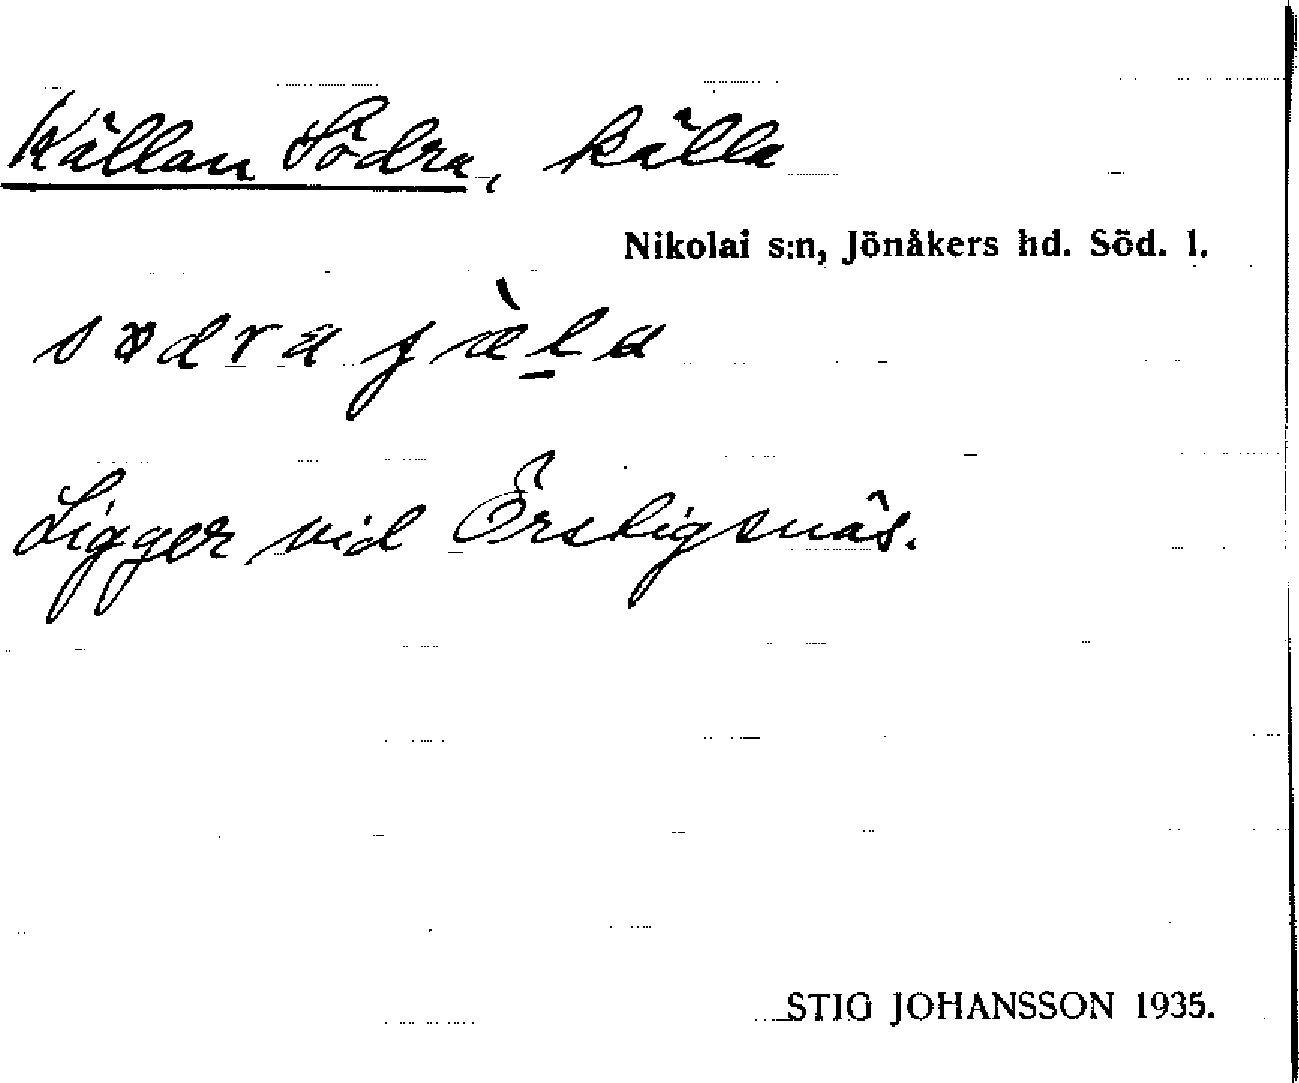 Källan Södra, källa
Nikolai s:n, Jönåkers hd. Söd. l.
Ligger vid Örsligsnäs.
STIG JOHANSSON 1935.